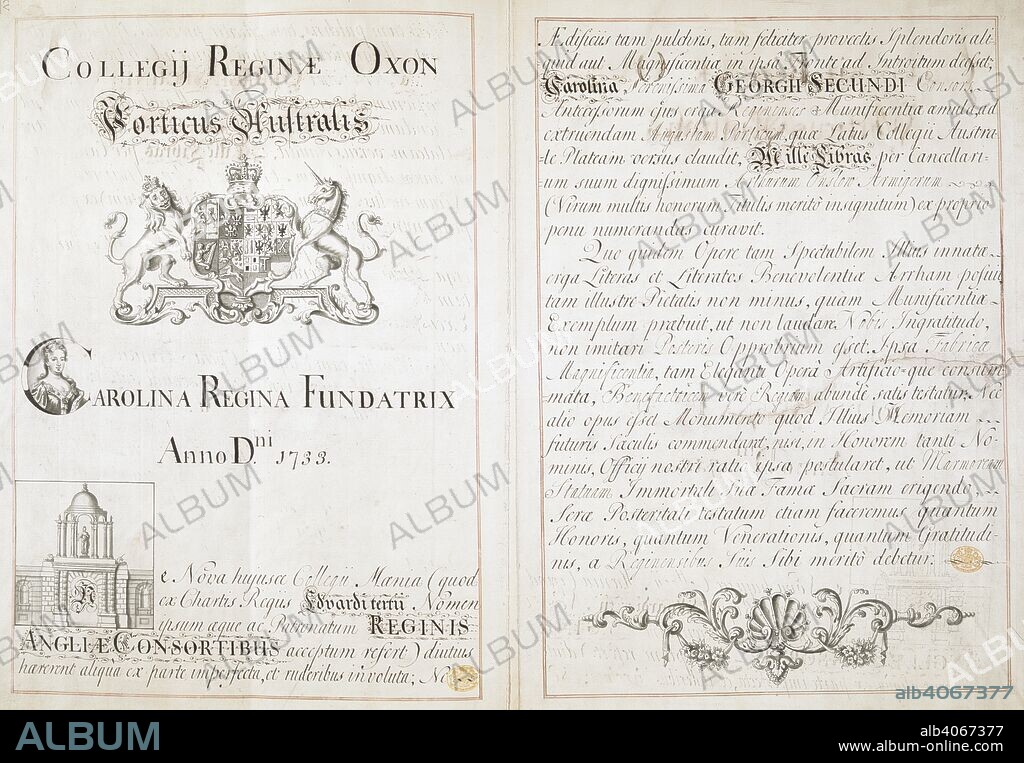 COLLEGIJ REGINÆ OXON
Porticus Australis
CAROLINA REGINA FUNDATRIX
Anno D.ni 1733.
Ne Nova hujusce Collegii Mænia (quod
ex Chartis Regus Edvardi tertii Nomen
ipsum æque ac Patronatum REGINIS
ANGLIÆ CONSORTIBUS acceptum refert) diutius
hærerent aliqua ex parte imperfecta, et ruderibus involuta; Ne
Ædificiis tam pulchris, tam feliciter provectis Splendoris ali
quid aut Magnificentiæ in ipsa Fronte ad Introitum deesset;
Carolina, Serenissima GEORGII SECUNDI Consors,
Antecessorum ejus erga Reginenses Munificentiæ æmula, ad
extruendam Augustam Porticum quæ Latus Collegii Austra-
le Plateam versus claudit, Mille Libras per Cancellari-
=um suum dignissimum Arthurum Onslow Armigerum
(Virum multis honorum Titulis merito insignitum) ex proprio
penu numerandas curavit.
Quo quidem Opere tam Spectabilem Illius innatæ
erga Literas et Literatos Benevolentiæ Arrham posuit
tam illustre Pietatis non minus, quam Munificentiæ
Exemplum præbuit, ut non laudare Nobis Ingratitudo,
non imitari Posteris Opprobrium esset. Ipsa Fabricæ
Magnificentia, tam Eleganti Operâ Artificio-que consum-
mata, Benefactricem vere Regiam abunde satis testatur. Nec
alio opus esset Monumento quod Illius Memoriam
futuris Sæculis commendaret, nisi, in Honorem tanti No-
minis, Officij nostri ratio ipsa postularet, ut Marmoream
Statuam Immortali Suæ Famæ Sacram erigendo,
Seræ Posteritati testatum etiam faceremus quantum
Honoris, quantum Venerationis, quantum Gratitudi-
nis, a Reginensibus Suis Sibi merito debetur.
ALBUM
alb4067377
alb4067377
www.album-online.com